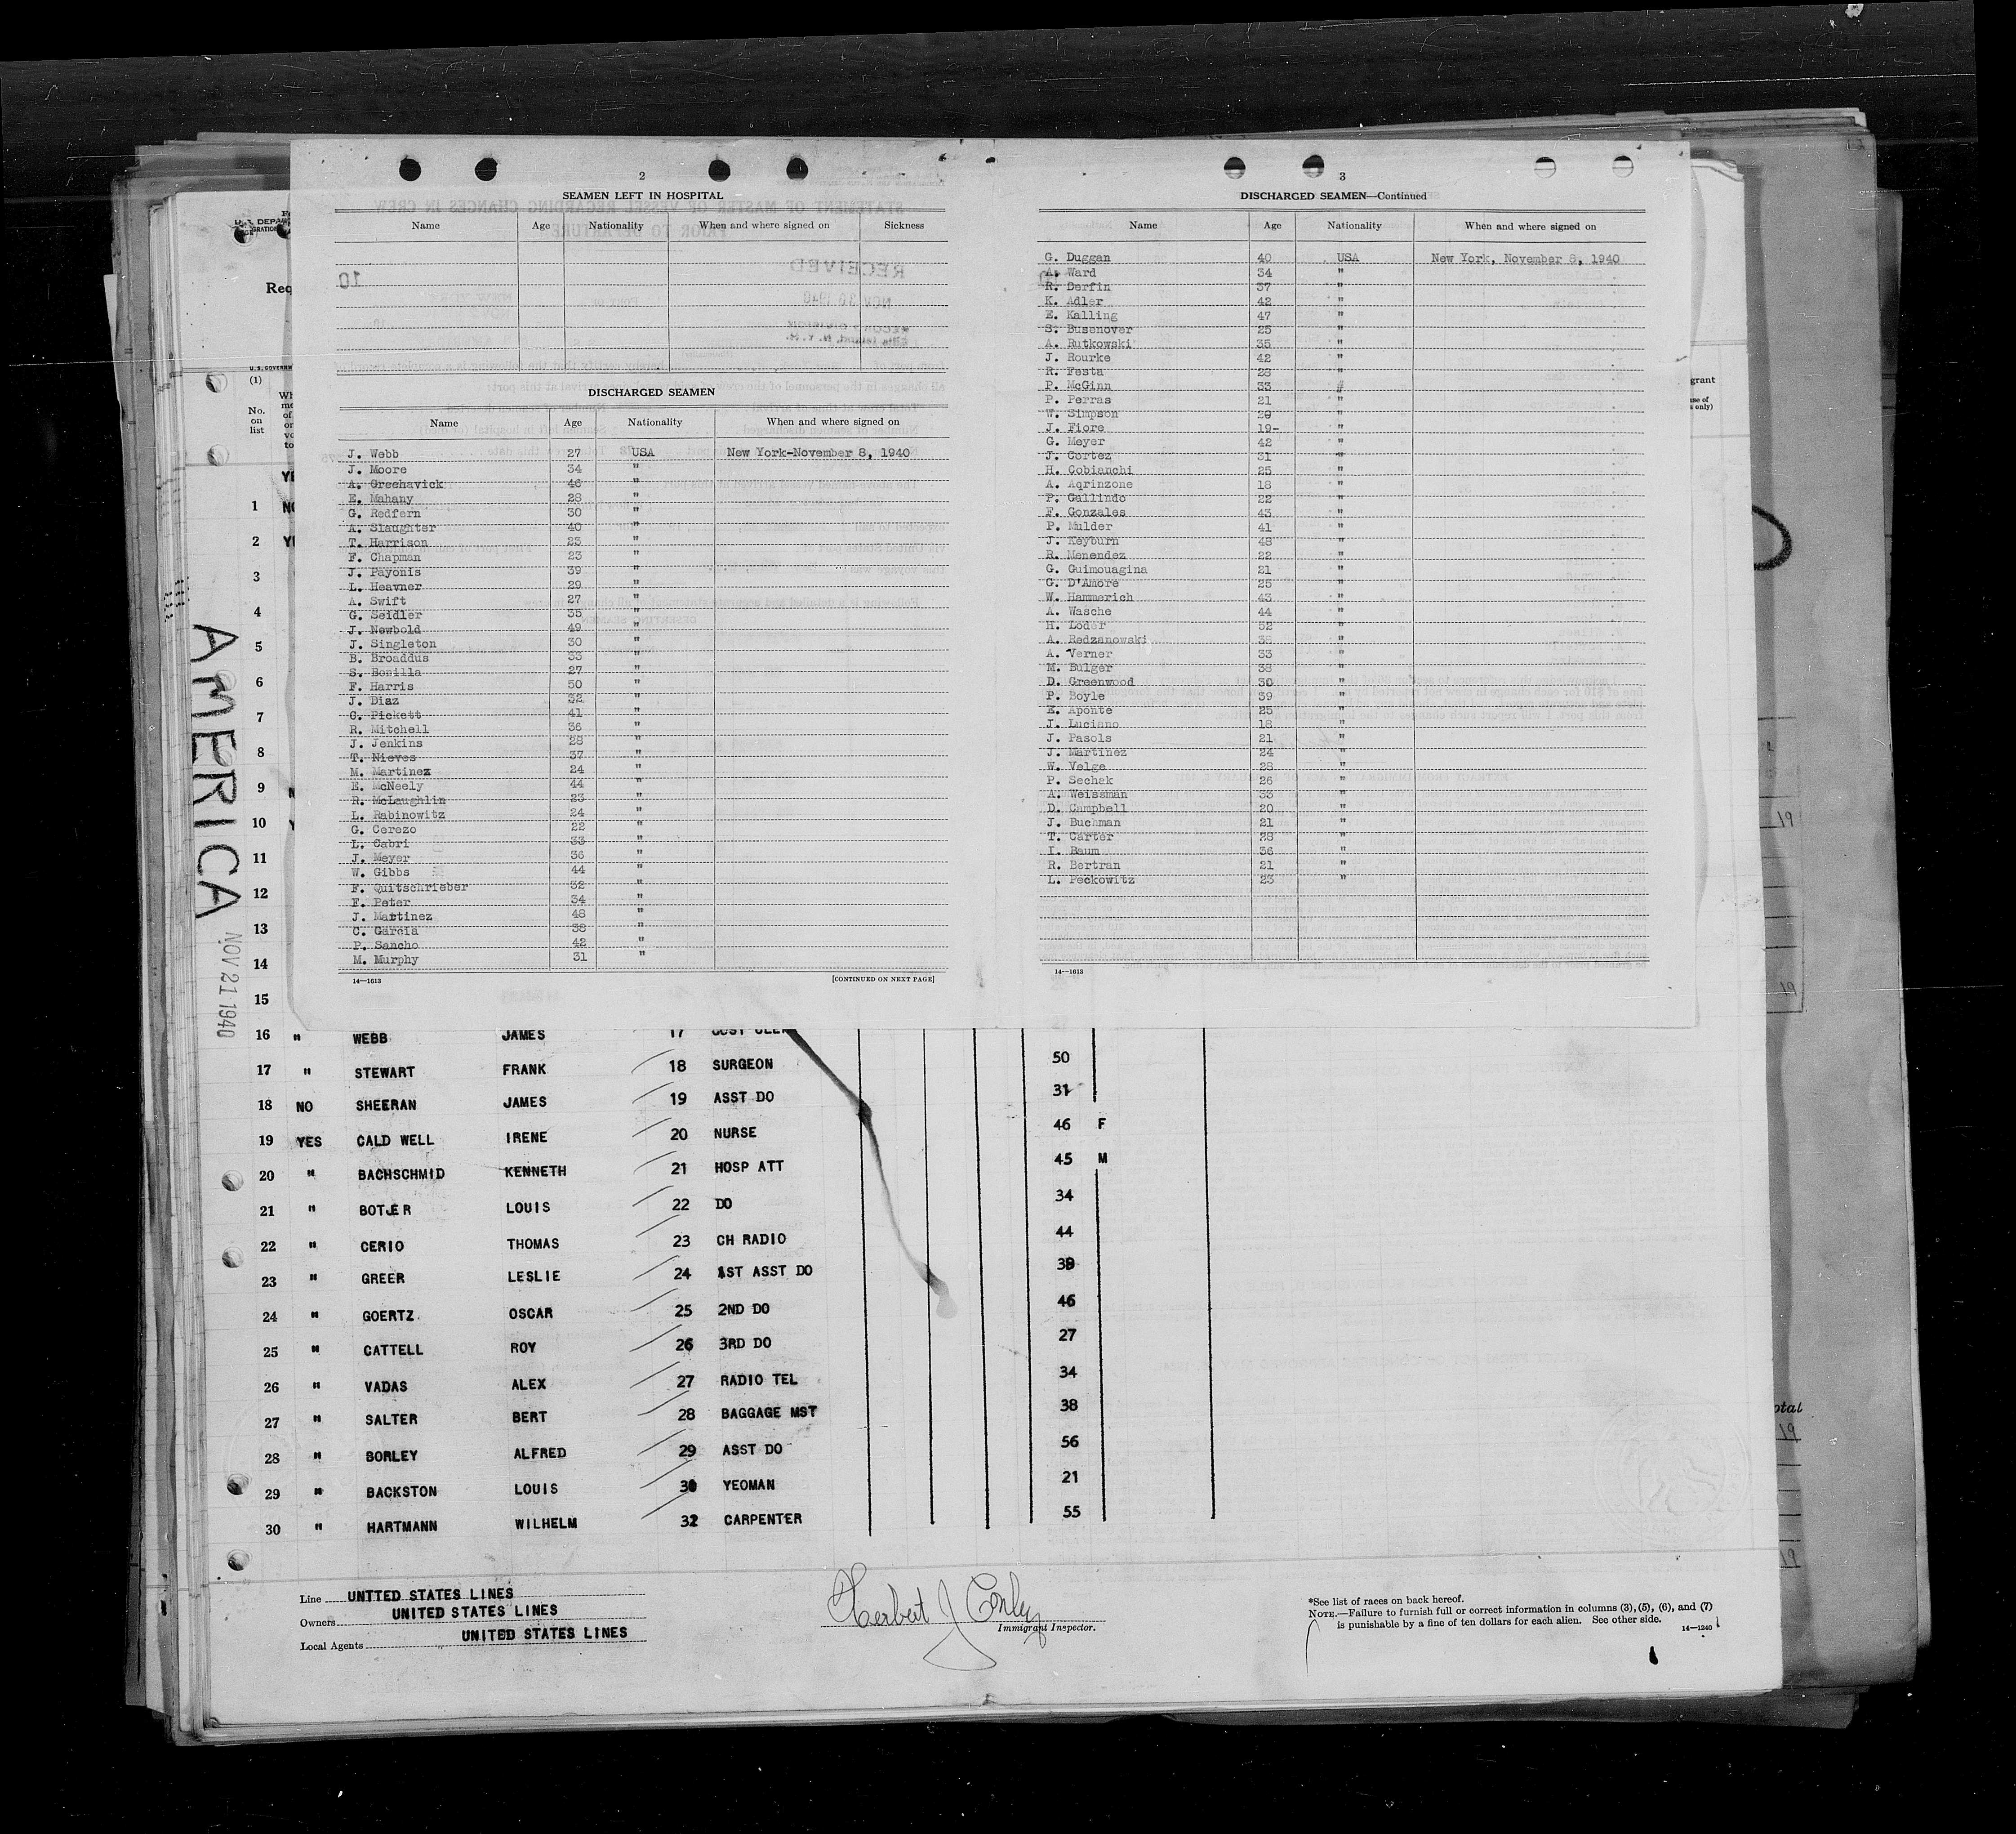 2
SEAMEN LEFT IN HOSPITAL
Name Age Nationality When and where signed on Sickness
DISCHARGED SEAMEN
Name Age Nationality When and where signed on
J. Webb 27 USA New York-November 8, 1940
J. Moore 34 "
A. Grechavick 46 "
E. Mahany 28 "
G. Redfern 30 "
A. Slaughter 40 "
T. Harrison 23 "
F. Chapman 23 "
J. Payonis 39 "
L. Heavner 29 "
A. Swift 27 "
G. Seidler 35 "
J. Newbold 49 "
J. Singleton 30 "
B. Broaddus 33 "
S. Bonilla 27 "
F. Harris 50 "
J. Diaz 32 "
C. Pickett 41 "
R. Mitchell 36 "
J. Jenkins 28 "
T. Nieves 37 "
M. Martinez 24 "
E. McNeely 44 "
R. McLaughlin 23 "
L. Rabinowitz 24 "
G. Cerezo 22 "
L. Cabri 33 "
J. Meyer 36 "
W. Gibbs 44 "
F. Quitschrieber 32 "
F. Peter 34 "
J. Martinez 48 "
C. Garcia 38 "
P. Sancho 42 "
M. Murphy 31 "
14—1613 [CONTINUED ON NEXT PAGE]
3
DISCHARGED SEAMEN—Continued
Name Age Nationality When and where signed on
G. Duggan 40 USA New York, November 8, 1940
A. Ward 34 "
R. Derfin 37 "
K. Adler 42 "
E. Kalling 47 "
S. Busenover 25 "
A. Rutkowski 35 "
J. Rourke 42 "
R. Festa 28 "
P. McGinn 33 "
P. Perras 21 "
W. Simpson 29 "
J. Fiore 19- "
G. Meyer 42 "
J. Cortez 31 "
H. Cobianchi 25 "
A. Aqrinzone 18 "
P. Gallindo 22 "
F. Gonzales 43 "
P. Mulder 41 "
J. Keyburn 48 "
R. Menendez 22 "
G. Guimouagina 21 "
G. D'Amore 25 "
W. Hammerich 43 "
A. Wasche 44 "
H. Loder 52 "
A. Redzanowski 38 "
A. Verner 33 "
M. Bulger 38 "
D. Greenwood 30 "
P. Boyle 39 "
E. Aponte 25 "
J. Luciano 18 "
J. Pasols 21 "
J. Martinez 24 "
W. Velge 28 "
P. Sechak 26 "
A. Weissman 33 "
D. Campbell 20 "
J. Buchman 21 "
T. Carter 28 "
I. Baum 36 "
R. Bertran 21 "
L. Peckowitz 23 "
14—1613
Req
(1)
No.
on
list
1
2
3
4
5
6
7
8
9
10
11
12
13
14
15
AMERICA
NOV 21 1940
16 " WEBB JAMES 17
17 " STEWART FRANK 18 SURGEON 50
18 NO SHEERAN JAMES 19 ASST DO 31
19 YES CALD WELL IRENE 20 NURSE 46 F
20 " BACHSCHMID KENNETH 21 HOSP ATT 45 M
21 " BOTJER LOUIS 22 DO 34
22 " CERIO THOMAS 23 CH RADIO 44
23 " GREER LESLIE 24 1ST ASST DO 39
24 " GOERTZ OSCAR 25 2ND DO 46
25 " CATTELL ROY 26 3RD DO 27
26 " VADAS ALEX 27 RADIO TEL 34
27 " SALTER BERT 28 BAGGAGE MST 38
28 " BORLEY ALFRED 29 ASST DO 56
29 " BACKSTON LOUIS 30 YEOMAN 21
30 " HARTMANN WILHELM 32 CARPENTER 55
Line UNTTED STATES LINES
Owners UNITED STATES LINES
Local Agents UNITED STATES LINES
Herbert J Conley
Immigrant Inspector.
*See list of races on back hereof.
NOTE.—Failure to furnish full or correct information in columns (3), (5), (6), and (7)
is punishable by a fine of ten dollars for each alien. See other side.
14—1240